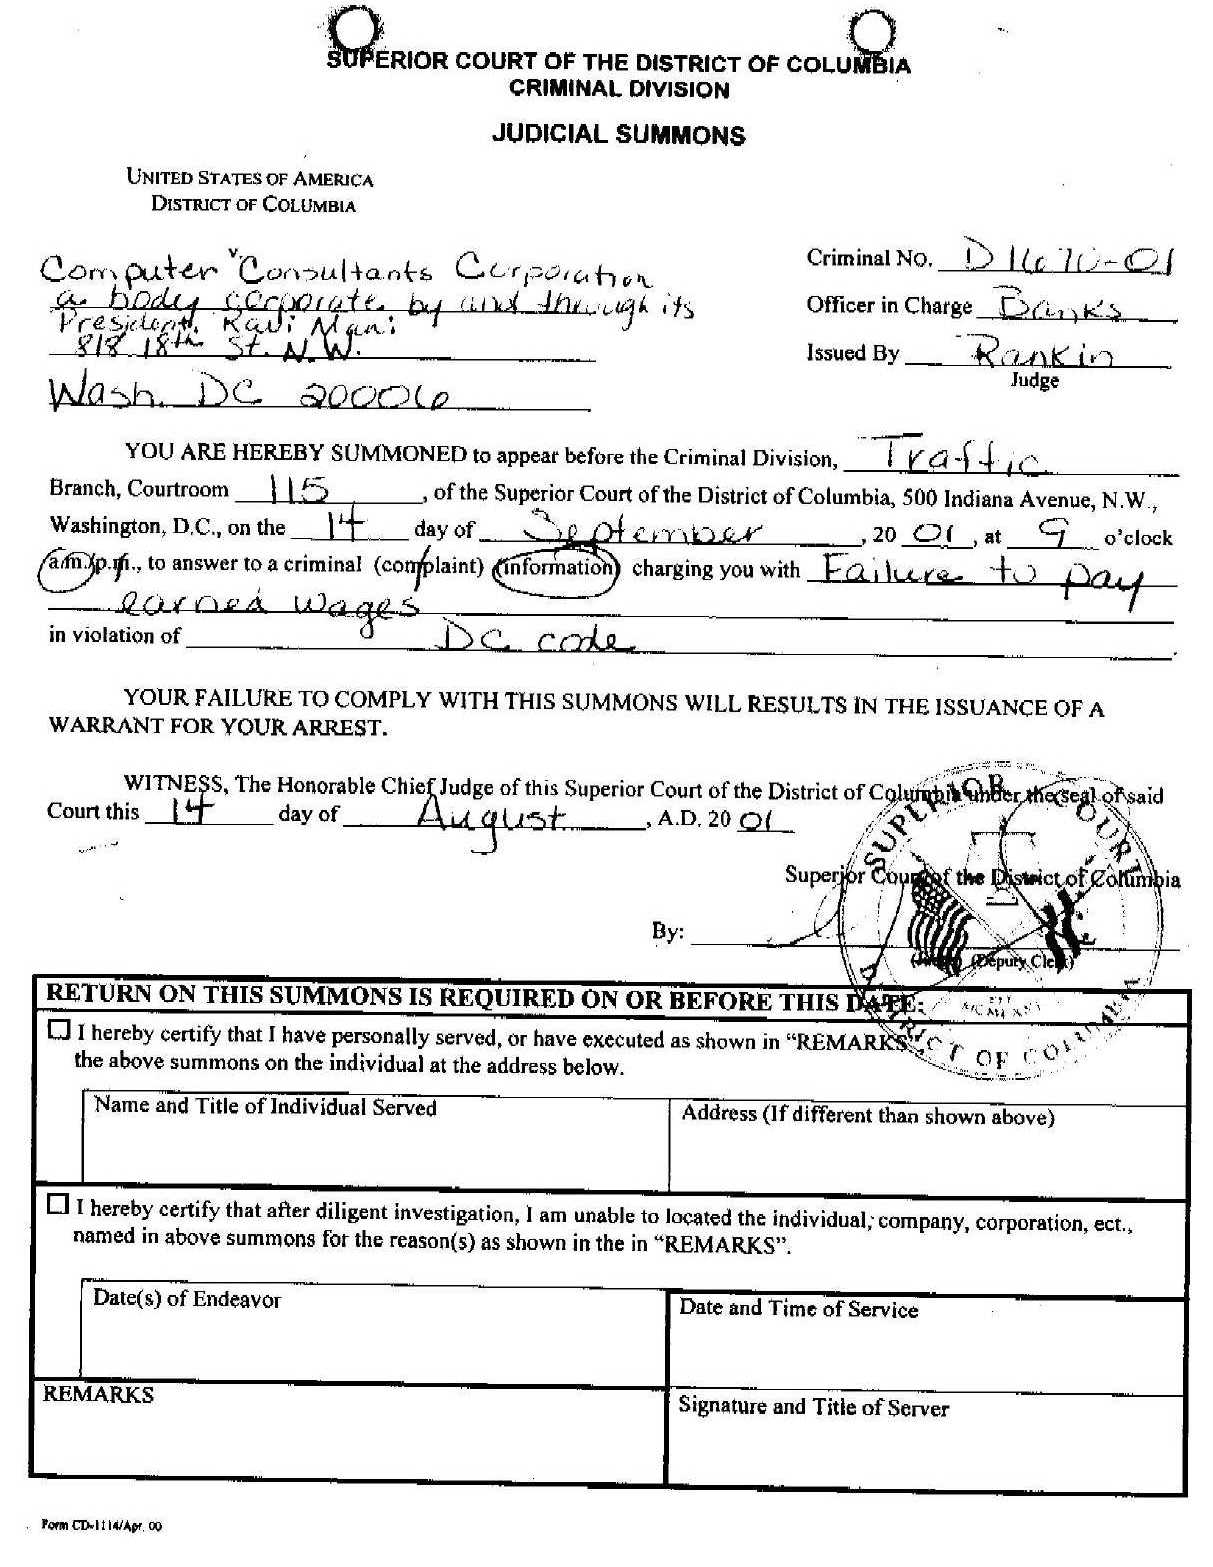 SUPERIOR COURT OF THE DISTRICT OF COLUMBIA
CRIMINAL DIVISION
JUDICIAL SUMMONS
UNITED STATES OF AMERICA
DISTRICT OF COLUMBIA
Computer Consultants Corporation
a body corporate by and through its
President, Ravi Mani
818 18th St. N.W.
Wash. DC 20006
Criminal No. D1670-01
Officer in Charge Banks
Issued By Rankin
Judge
YOU ARE HEREBY SUMMONED to appear before the Criminal Division, Traffic
Branch, Courtroom 115, of the Superior Court of the District of Columbia, 500 Indiana Avenue, N.W.,
Washington, D.C., on the 14 day of September, 20 01, at 9 o'clock
a.m./p.m., to answer to a criminal (complaint) (information) charging you with Failure to pay
earned wages
in violation of DC code.
YOUR FAILURE TO COMPLY WITH THIS SUMMONS WILL RESULTS IN THE ISSUANCE OF A
WARRANT FOR YOUR ARREST.
WITNESS, The Honorable Chief Judge of this Superior Court of the District of Columbia under the seal of said
Court this 14 day of August, A.D. 20 01
Superior Court of the District of Columbia
By:
(Deputy Clerk)
SUPERIOR COURT
DISTRICT OF COLUMBIA
RETURN ON THIS SUMMONS IS REQUIRED ON OR BEFORE THIS DATE:
I hereby certify that I have personally served, or have executed as shown in "REMARKS",
the above summons on the individual at the address below.
Name and Title of Individual Served
Address (If different than shown above)
I hereby certify that after diligent investigation, I am unable to located the individual, company, corporation, ect.,
named in above summons for the reason(s) as shown in the in "REMARKS".
Date(s) of Endeavor
Date and Time of Service
REMARKS
Signature and Title of Server
Form CD-1114/Apr. 00